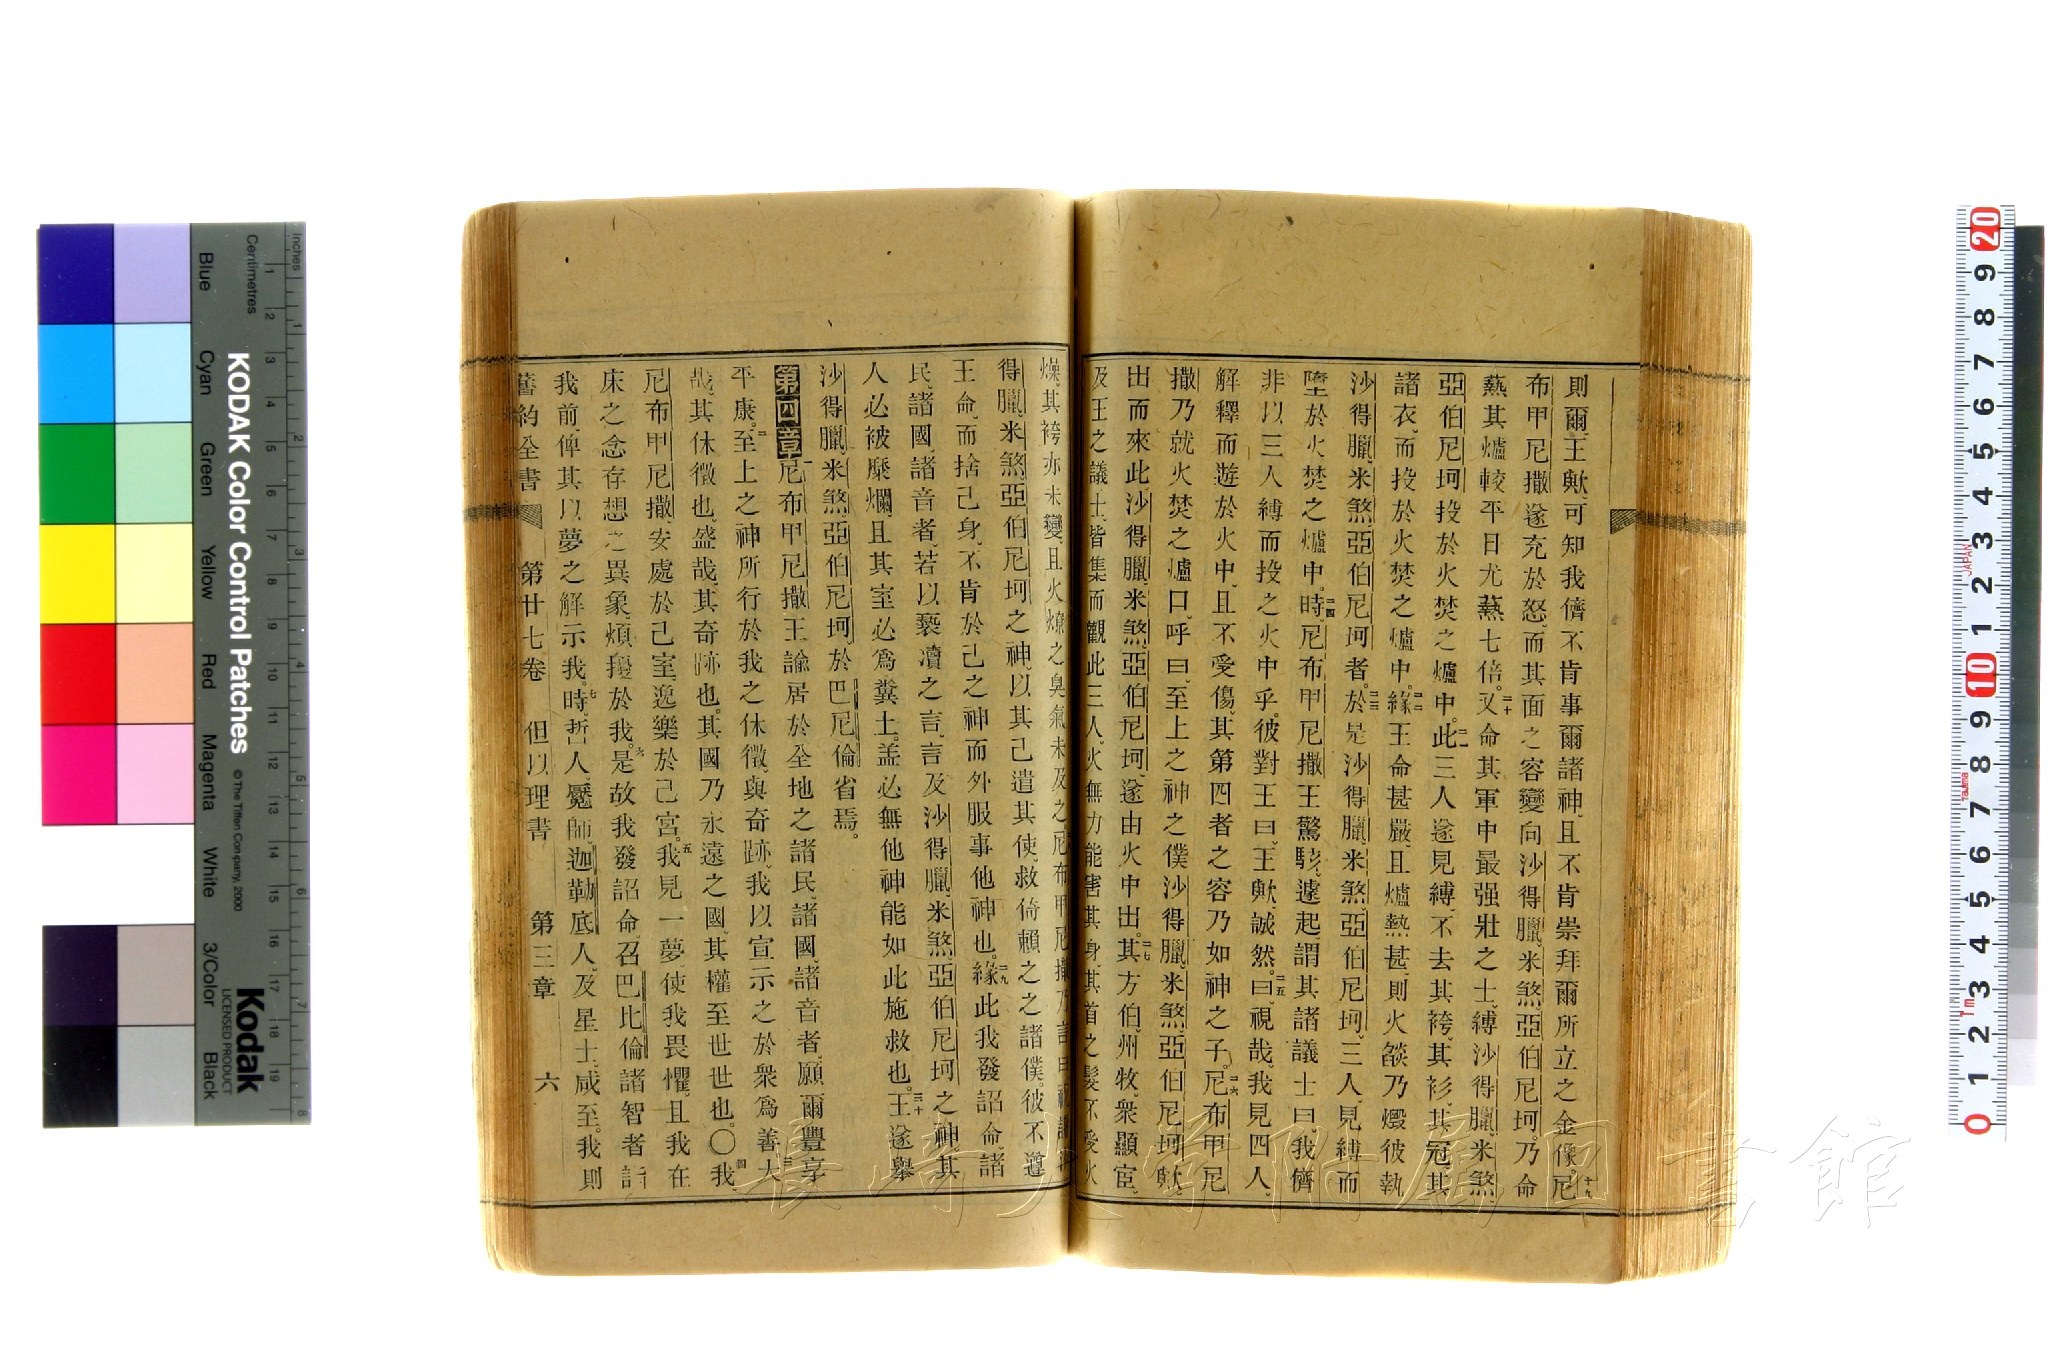 則爾王歟、可知我儕不肯事爾諸神、且不肯崇拜爾所立之金像。十九尼
布甲尼撒遂充於怒、而其面之容變向沙得臘、米煞、亞伯尼坷、乃命
爇其爐較平日尤爇七倍。二十又命其軍中最强壯之士、縛沙得臘、米煞、
亞伯尼坷投於火焚之爐中。二一此三人遂見縛、不去其袴、其衫、其冠、其
諸衣、而投於火焚之爐中。二二緣王命甚嚴、且爐熱甚、則火燄乃燬彼執
沙得臘、米煞、亞伯尼坷者。二三於是沙得臘、米煞、亞伯尼坷、三人、見縛而
墮於火焚之爐中。二四時、尼布甲尼撒王驚駭、遽起、謂其諸議士曰、我儕
非以三人縛而投之火中乎。彼對王曰、王歟、誠然。二五曰、視哉、我見四人、
解釋而遊於火中、且不受傷、其第四者之容乃如神之子。二六尼布甲尼
撒乃就火焚之爐口、呼曰、至上之神之僕沙得臘、米煞、亞伯尼坷歟、
出而來此、沙得臘、米煞、亞伯尼坷、遂由火中出。二七其方伯、州牧、衆顯宦、
及王之議士、皆集而觀此三人、火無力能害其身、其首之髮不受火
燥、其袴亦未變、且火燎之臭氣未及之。尼布甲尼撒乃言曰
得臘、米煞、亞伯尼坷之神、以其己遣其使、救倚賴之之諸僕。彼不遵
王命、而捨己身、不肯於己之神而外服事他神也。二九緣此我發詔命、諸
民、諸國、諸音者、若以褻凟之言、言及沙得臘米煞亞伯尼坷之神、其
人必被糜爛、且其室必爲糞土。盖必無他神能如此施救也。三十王遂擧
沙得臘、米煞、亞伯尼坷、於巴尼倫省焉。
第四章 一尼布甲尼撒王諭居於全地之諸民、諸國、諸音者、願爾豐享
平康。二至上之神所行於我之休徵、與奇跡、我以宣示之於衆爲善。三大
哉、其休徵也、盛哉、其奇跡也。其國乃永遠之國、其權至世世也。〇四我、
尼布甲尼撒、安處於己室、逸樂於己宮。五我見一夢、使我畏懼。且我在
床之念存想之異象煩擾於我。六是故我發詔命、召巴比倫諸智者詣
我前、俾其以夢之解示我。七時、哲人、魘師、迦勒底人、及星士、咸至。我則
舊約全書 第廿七卷 但以理書 第三章 六
長崎大學附屬圖書館
KODAK Color Control Patches
© The Tiffen Company, 2000
Kodak
LICENSED PRODUCT
Inches
Centimetres
Blue Cyan Green Yellow Red Magenta White 3/Color Black
1 2 3 4 5 6 7 8 9 10 11 12 13 14 15 16 17 18 19
1 2 3 4 5 6 7 8
0 1 2 3 4 5 6 7 8 9 10 1 2 3 4 5 6 7 8 9 20
1m
Tajima
JAPAN